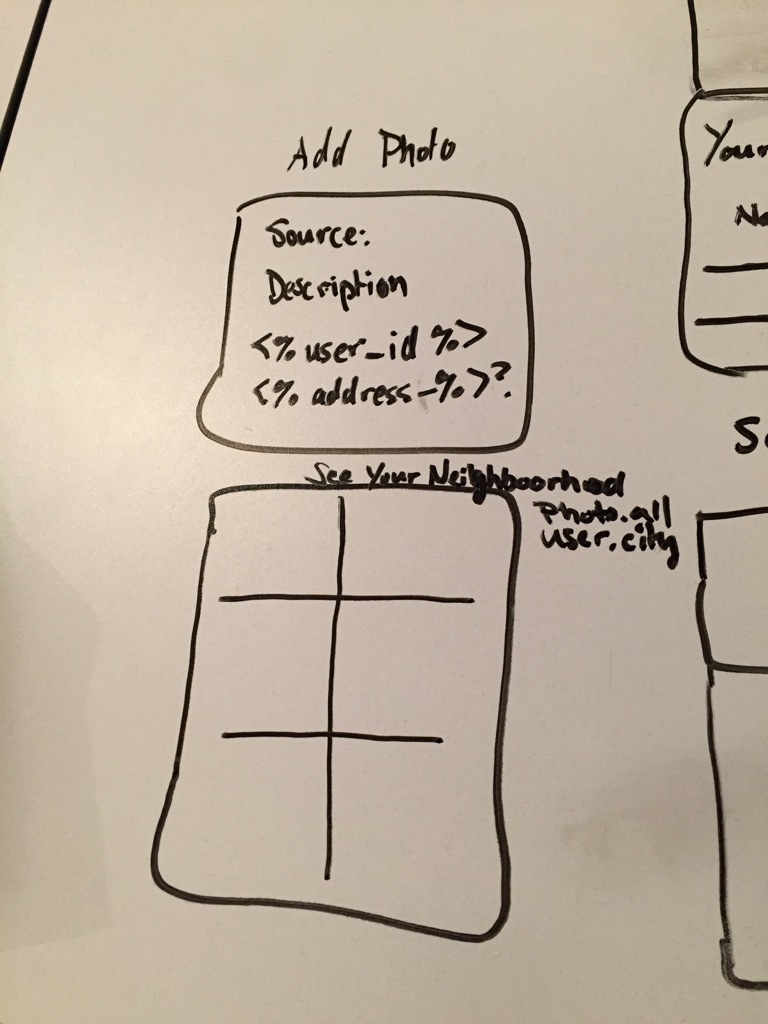 Add Photo
Source:
Description
<% user_id %>
<% address_%>?
See Your Neighboorhood
Photo.all
user.city